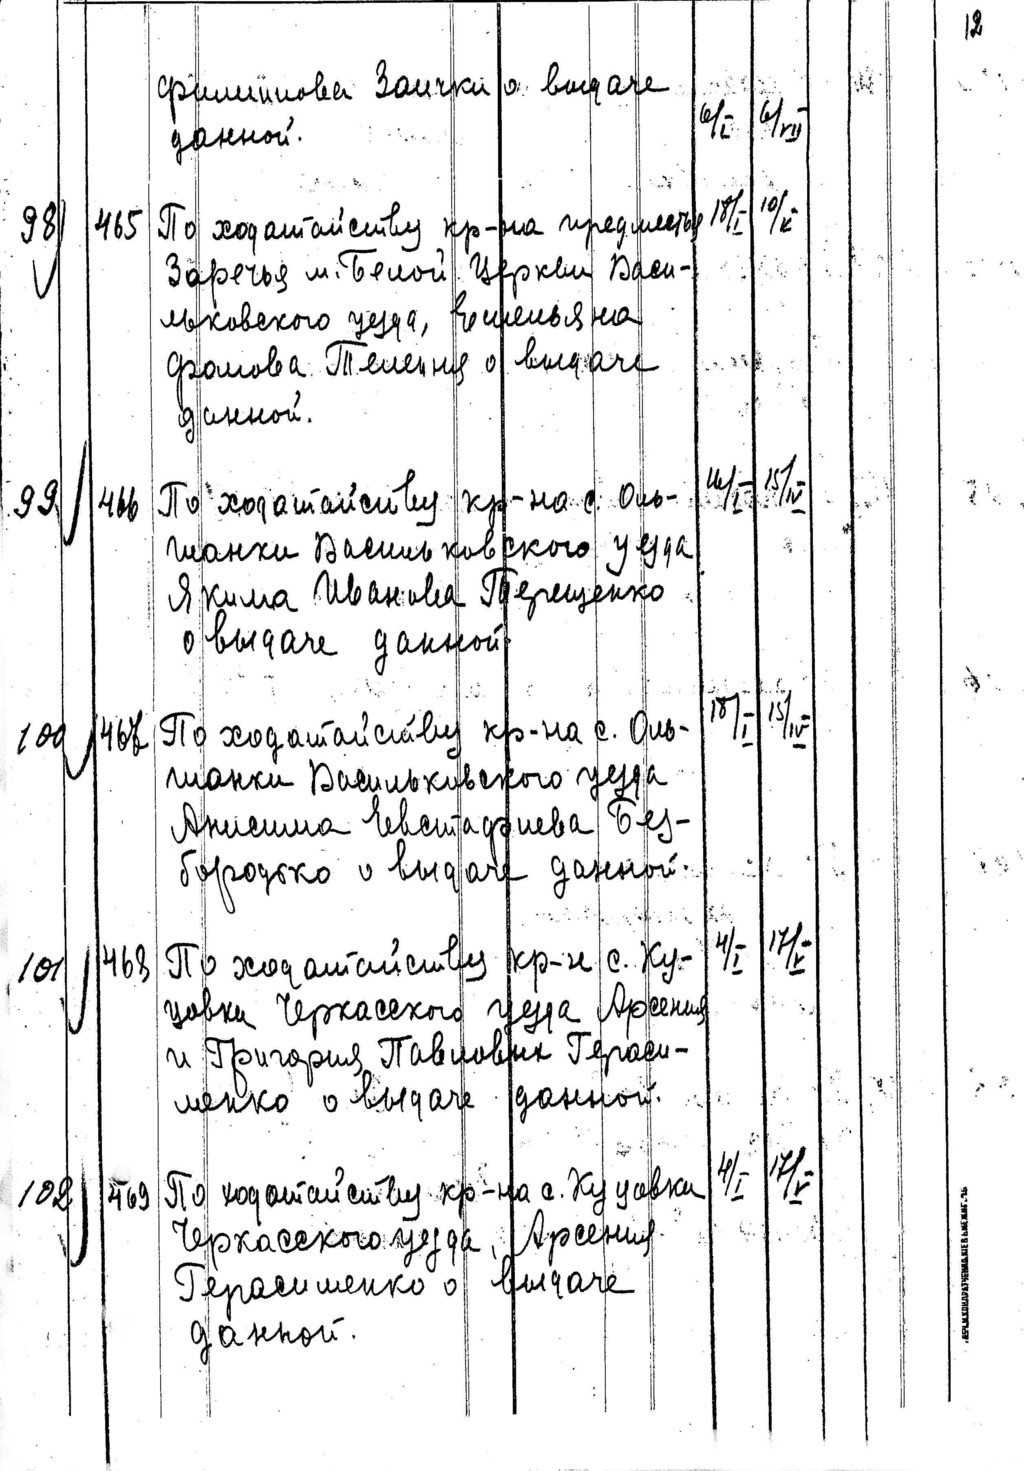 12
Филиппова Заички о выдаче
данной. 6/I 6/VII
98 465 По ходатайству кр-на предместья 18/I 10/V
Заречья м. Белой Церкви Васи-
льковского уезда, Емельяна
Фомова Телепня о выдаче
данной.
99 466 По ходатайству кр-на с. Оль- 15/IV
шанки Васильковского уезда
Якима Иванова Терещенко
о выдаче данной.
100 467 По ходатайству кр-на с. Оль- 18/I 15/IV
шанки Васильковского уезда
Анисима Евстафиева Без-
бородько о выдаче данной.
101 468 По ходатайству кр-н с. Ку- 4/I 17/V
цовки Черкасского уезда Арсения
и Григория Павловых Гераси-
менко о выдаче данной.
102 469 По ходатайству кр-на с. Куцовки 4/I 17/V
Черкасского уезда, Арсения
Герасименко о выдаче
данной.